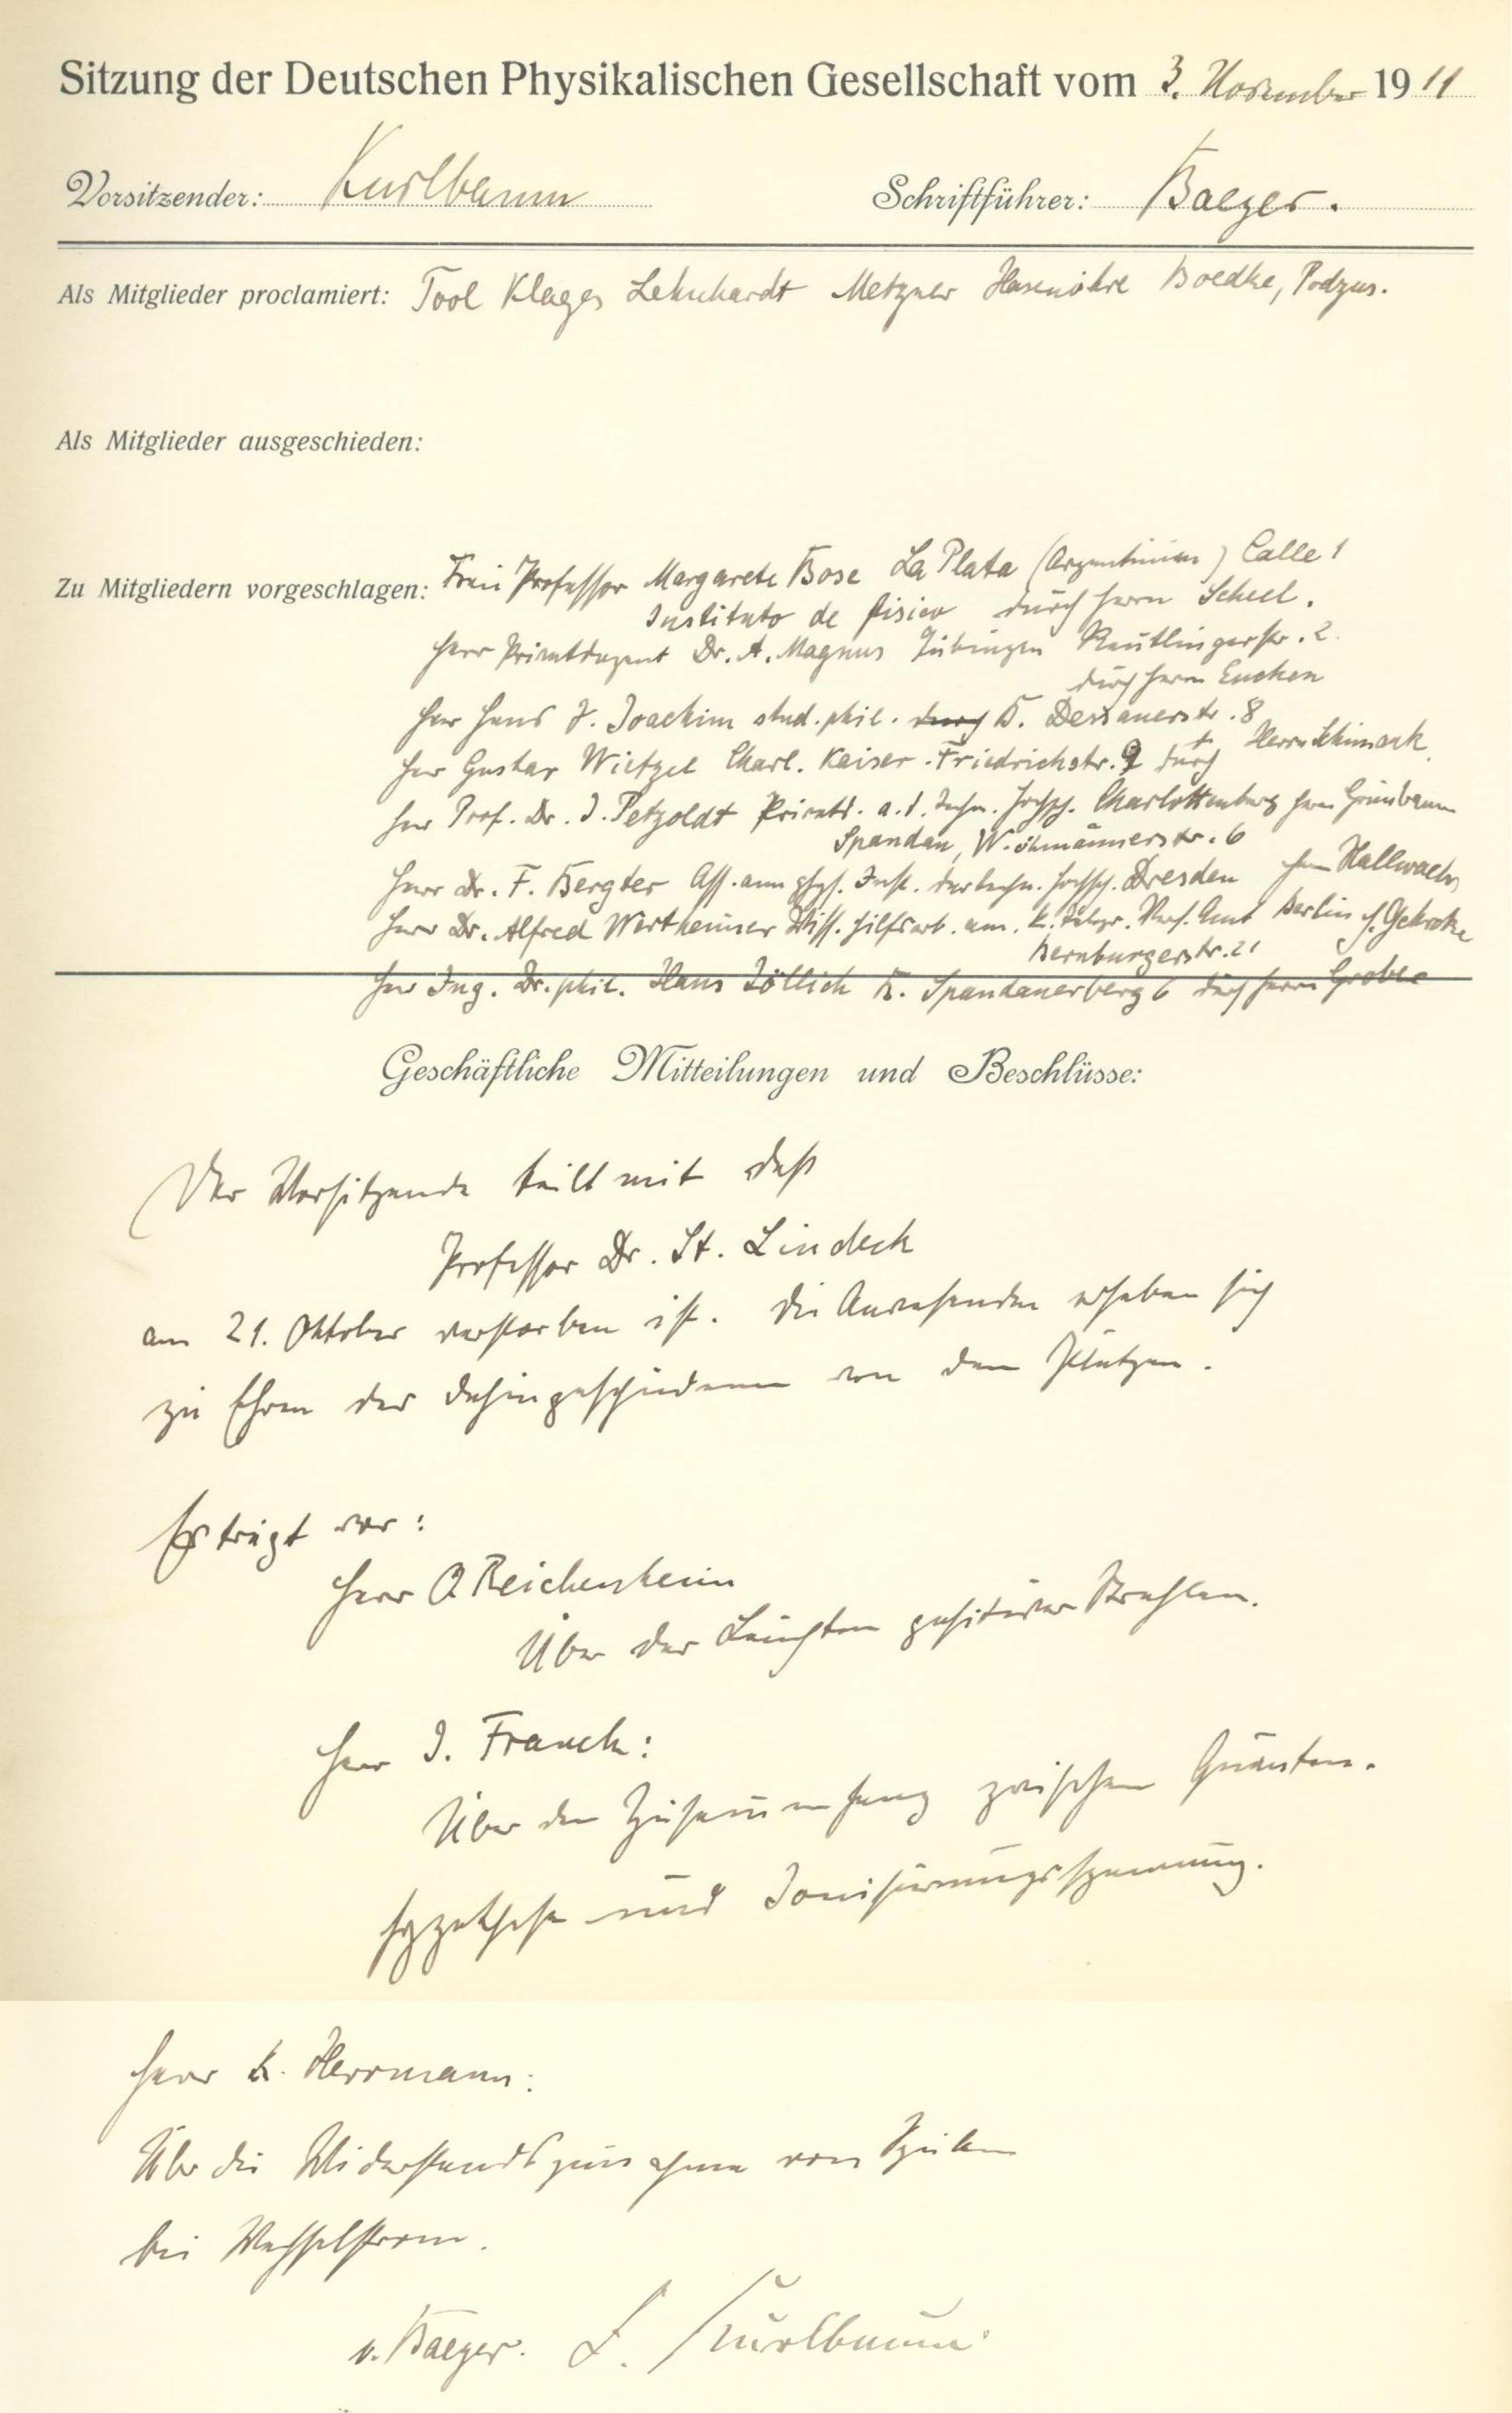 Sitzung der Deutschen Physikalischen Gesellschaft vom 3. November 1911
Vorsitzender: Kurlbaum Schriftführer: Baeyer.
Als Mitglieder proclamiert: Tool Klages Lehnhardt Metzner Hasenöhrl Boedke, Podzus.
Als Mitglieder ausgeschieden:
Zu Mitgliedern vorgeschlagen: Frau Professor Margarete Bose La Plata (Argentinien) Calle 1
Instituto de fisico durch Herrn Scheel.
Herr Privatdozent Dr. A. Magnus Tübingen Reutlingerstr. 2.
durch Herrn Eucken
Herr Hans J. Joachim stud. phil. durch B. Dessauerstr. 8
Herr Gustav Wietzel Charl. Kaiser-Friedrichstr. 9 durch Herrn Schimank.
Herr Prof. Dr. J. Petzoldt Privatd. a. d. Techn. Hochsch. Charlottenburg Herrn Grünbaum
Spandau, Wröhmännerstr. 6
Herr Dr. F. Bergter Ass. am phys. Inst. der techn. Hochsch. Dresden Herrn Hallwachs
Herr Dr. Alfred Wertheimer Wiss. Hilfsarb. am K. Telegr. Vers. Amt Berlin H. Gehrcke
Bernburgerstr. 21
Herr Ing. Dr. phil. Hans Zöllich B. Spandauerberg 6 durch Herrn Grober
Geschäftliche Mitteilungen und Beschlüsse:
Der Vorsitzende teilt mit daß
Professor Dr. St. Lindeck
am 21. Oktober verstorben ist. Die Anwesenden erheben sich
zu Ehren des Dahingeschiedenen von den Plätzen.
Es trägt vor:
Herr O. Reichenheim
Über das Leuchten positiver Strahlen.
Herr J. Franck:
Über den Zusammenhang zwischen Quanten-
hypothese und Ionisierungsspannung.
Herr K. Herrmann:
Über die Widerstandszunahme von Spulen
bei Wechselstrom.
v. Baeyer. F. Kurlbaum